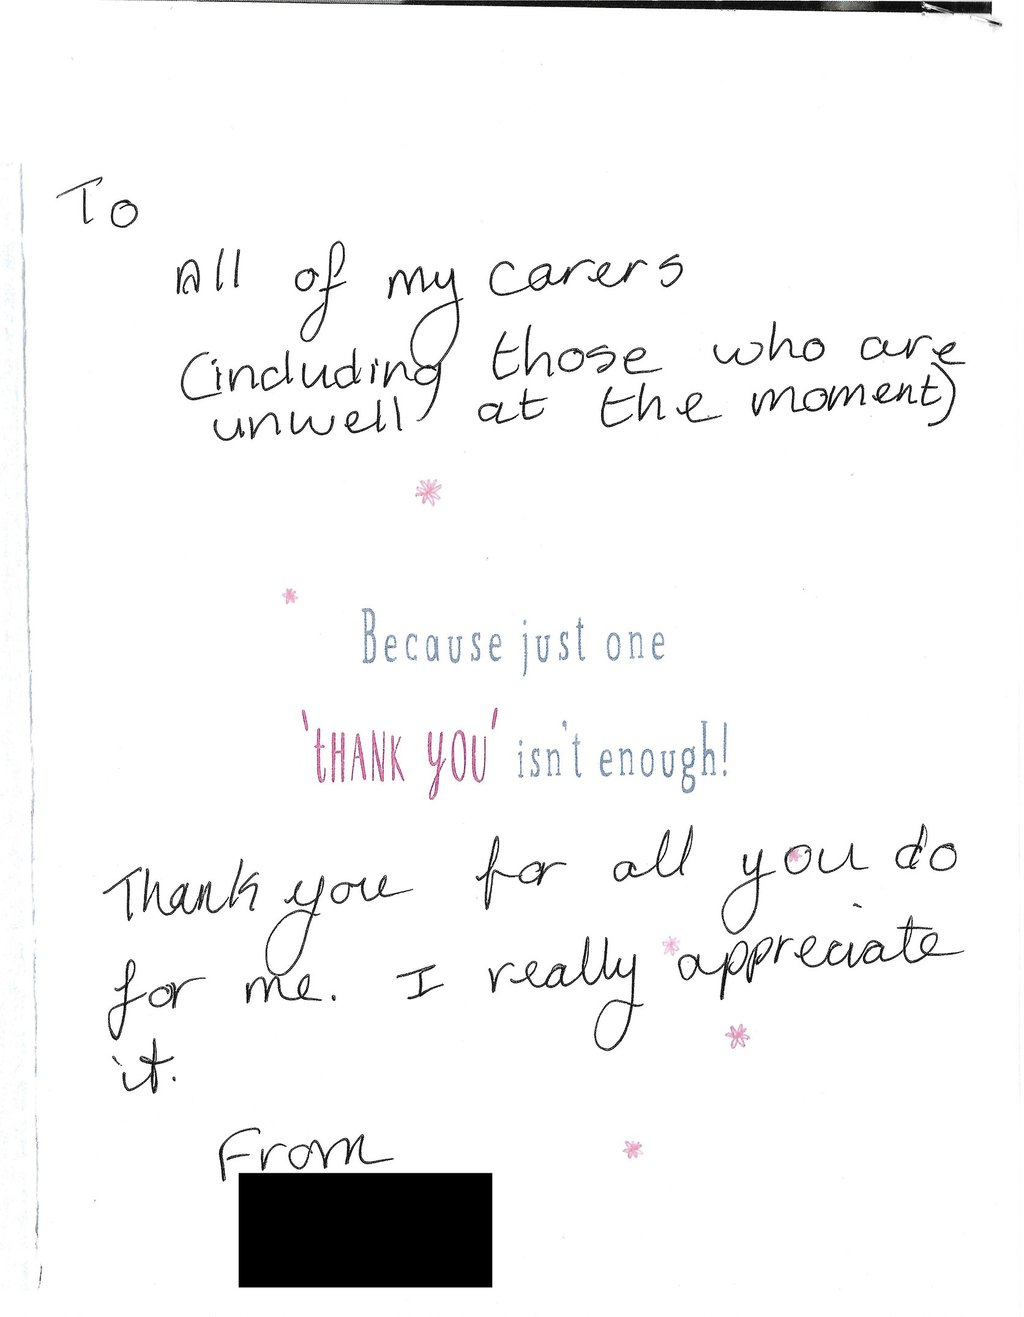 To
All of my carers
(including those who are
unwell at the moment)
Because just one
'tHANK YOU' isn't enough!
Thank you for all you do
for me. I really appreciate
it.
From